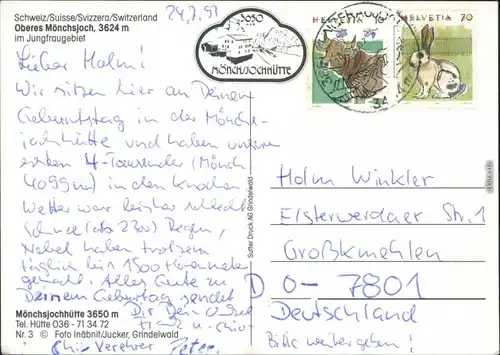 Schweiz/Suisse/Svizzera/Switzerland
Oberes Mönchsjoch, 3624 m
im Jungfraugebiet
24.7.93
3650
MÖNCHSJOCHHÜTTE
HELVETIA 70
Lieber Holm!
Wir sitzen hier an Deinem
Geburtstag in der Mönchs-
jochhütte und haben unseren
ersten 4-Tausender (Mönch
4099m) in den Knochen
Wetter war bisher schlecht
Schnee (ab 2300) Regen,
Nebel haben trotzdem
täglich bis 1500 Höhenmeter
gemacht. Alles Gute zu
Deinem Geburtstag sendet
Dir Dein
Verehrer Peter.
Mönchsjochhütte 3650 m
Tel. Hütte 036 - 71 34 72
Nr. 3 © Foto Inäbnit/Jucker, Grindelwald
Sutter Druck AG Grindelwald
Holm Winkler
Elsterwerdaer Str. 1
Großkmehlen
D O-7801
Deutschland
Bitte weitergeben!